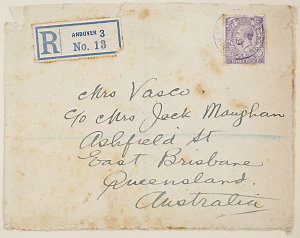 R
ANDOVER 3
No. 13
Mrs Vasco
c/o Mrs Jack Maughan
Ashfield St
East Brisbane
Queensland.
Australia